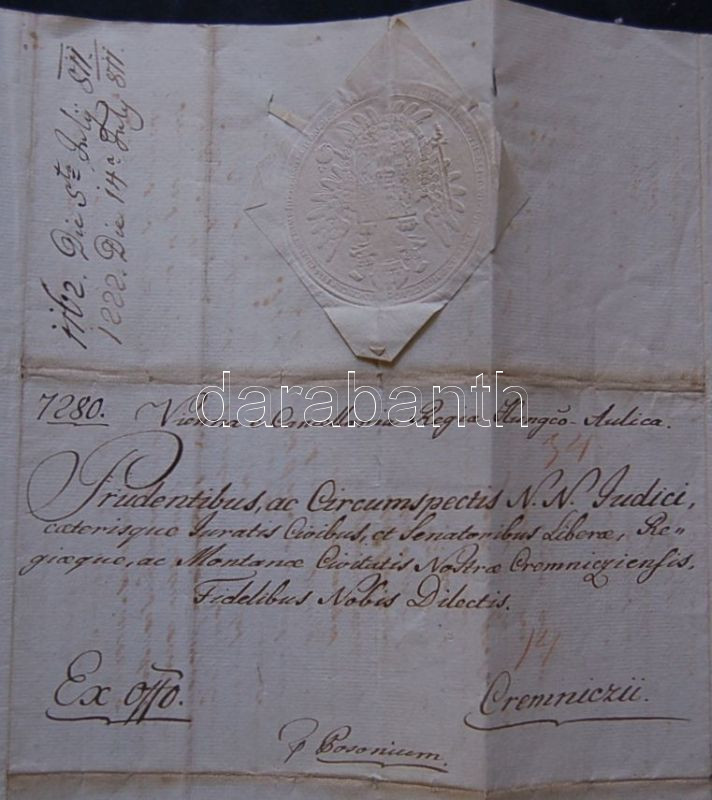 1162. Die 5ta July 811
1222. Die 14a July 811
darabanth
7280. Vienna e Cancellaria Regia Hungco-Aulica.
34
Prudentibus, ac Circumspectis N. N. Judici,
caeterisque Juratis Civibus, et Senatoribus Liberae, Re=
giaeque, ac Montanae Civitatis Nostrae Cremnicziensis,
Fidelibus Nobis Dilectis.
14
Ex Offo.
Cremniczii.
P Posonium.